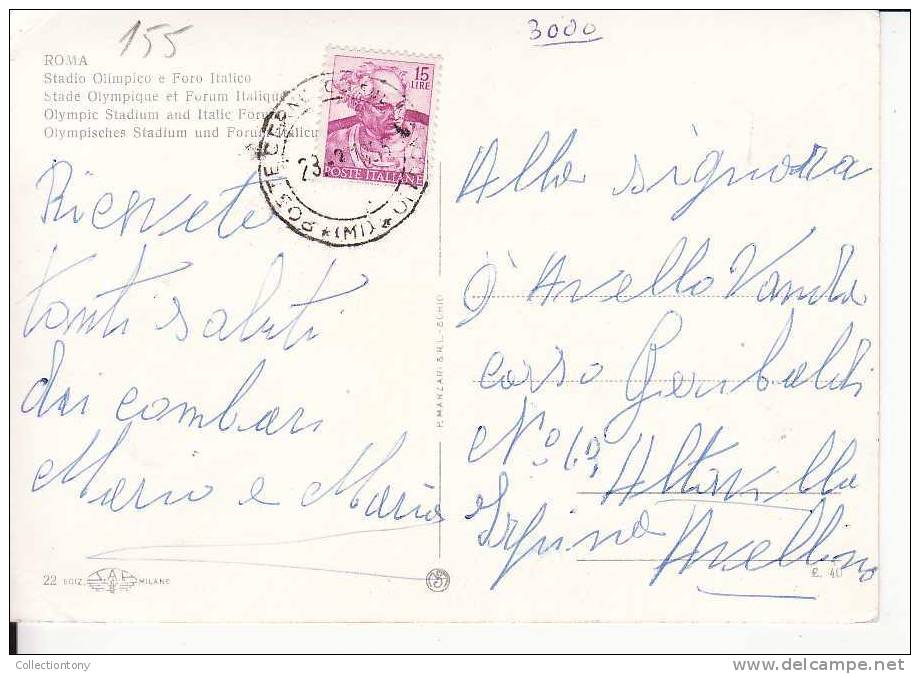 155
3000
ROMA
Stadio Olimpico e Foro Italico
Stade Olympique et Forum Italique
Olympic Stadium and Italic Forum
Olympisches Stadium und Forum Italicum
15
LIRE
POSTE ITALIANE
(MI)
Ricevete
tanti saluti
dai combari
Mario e Maria
Alla signora
D'Avello
corso Garibaldi
N° 63 Altavilla
Irpina Avellino
P. MANZARI S.R.L. - SCHIO
22 EDIZ. SAF MILANO
£. 40
Collectiontony
delcampe.net